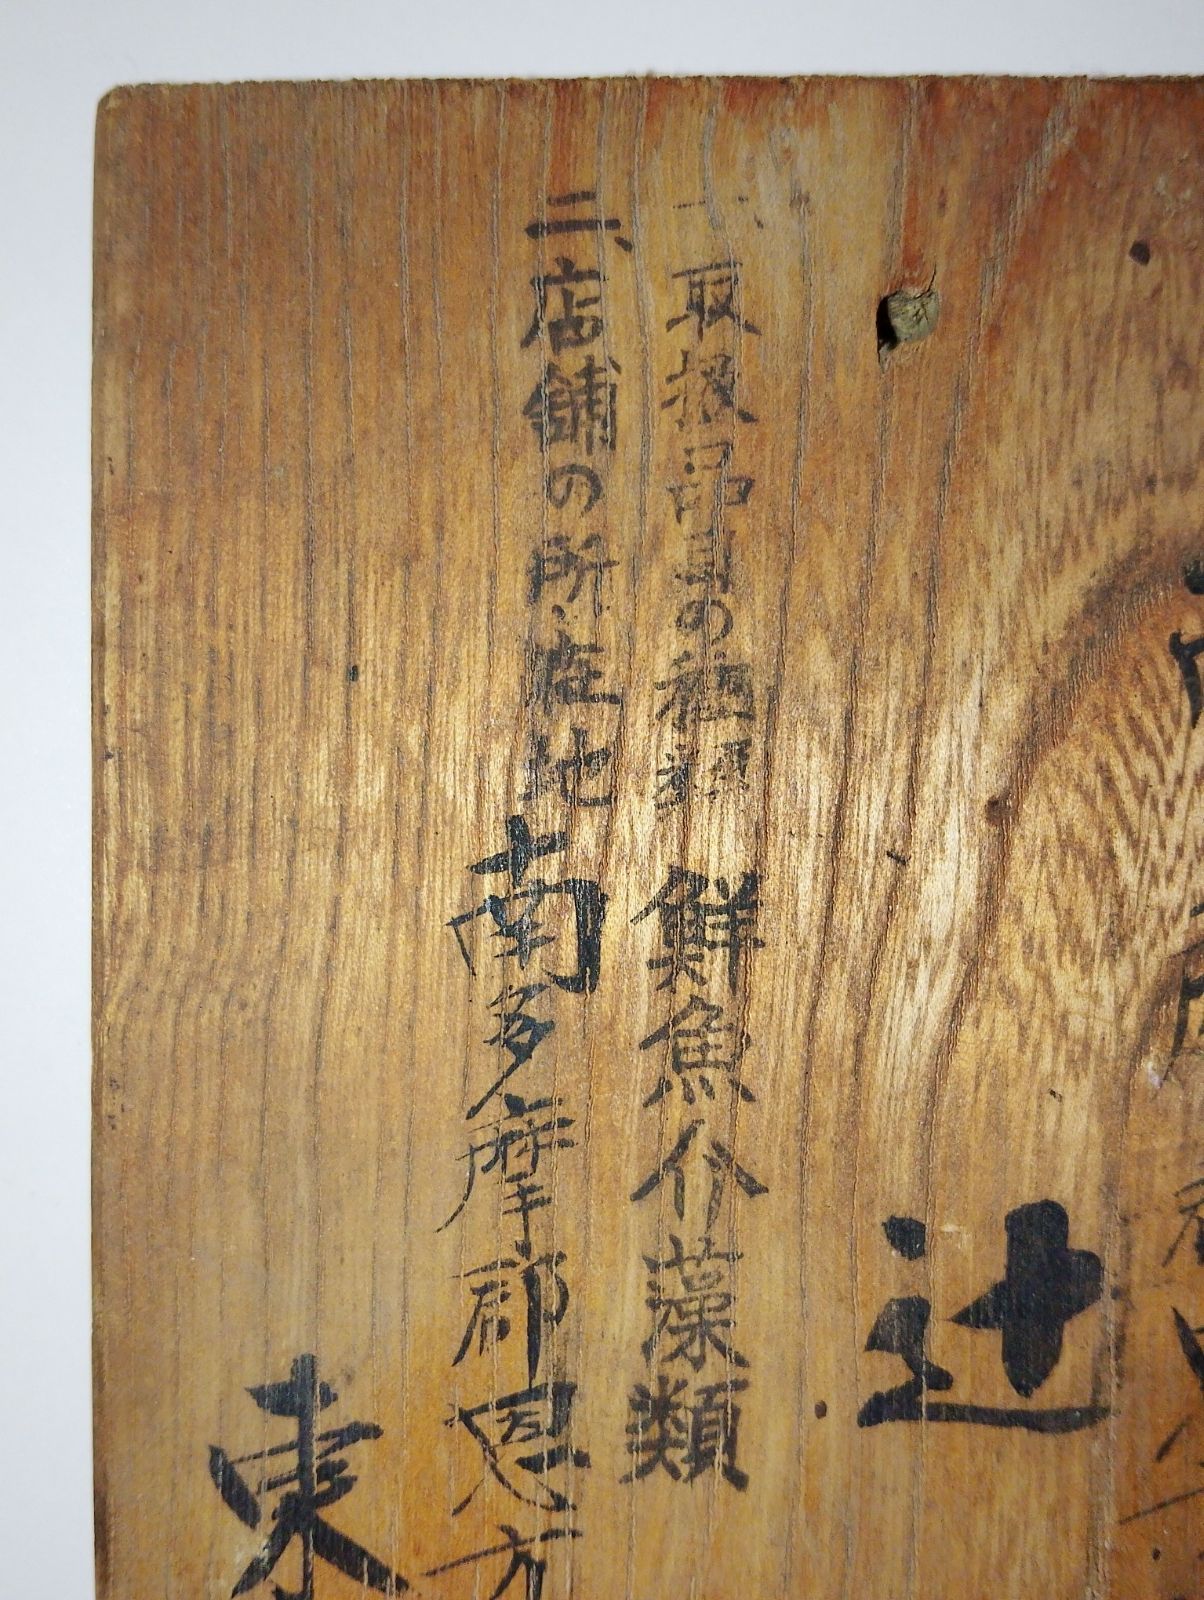 辻
一、取扱品目の種類 鮮魚介藻類
二、店舗の所在地 南多摩郡恩方
東